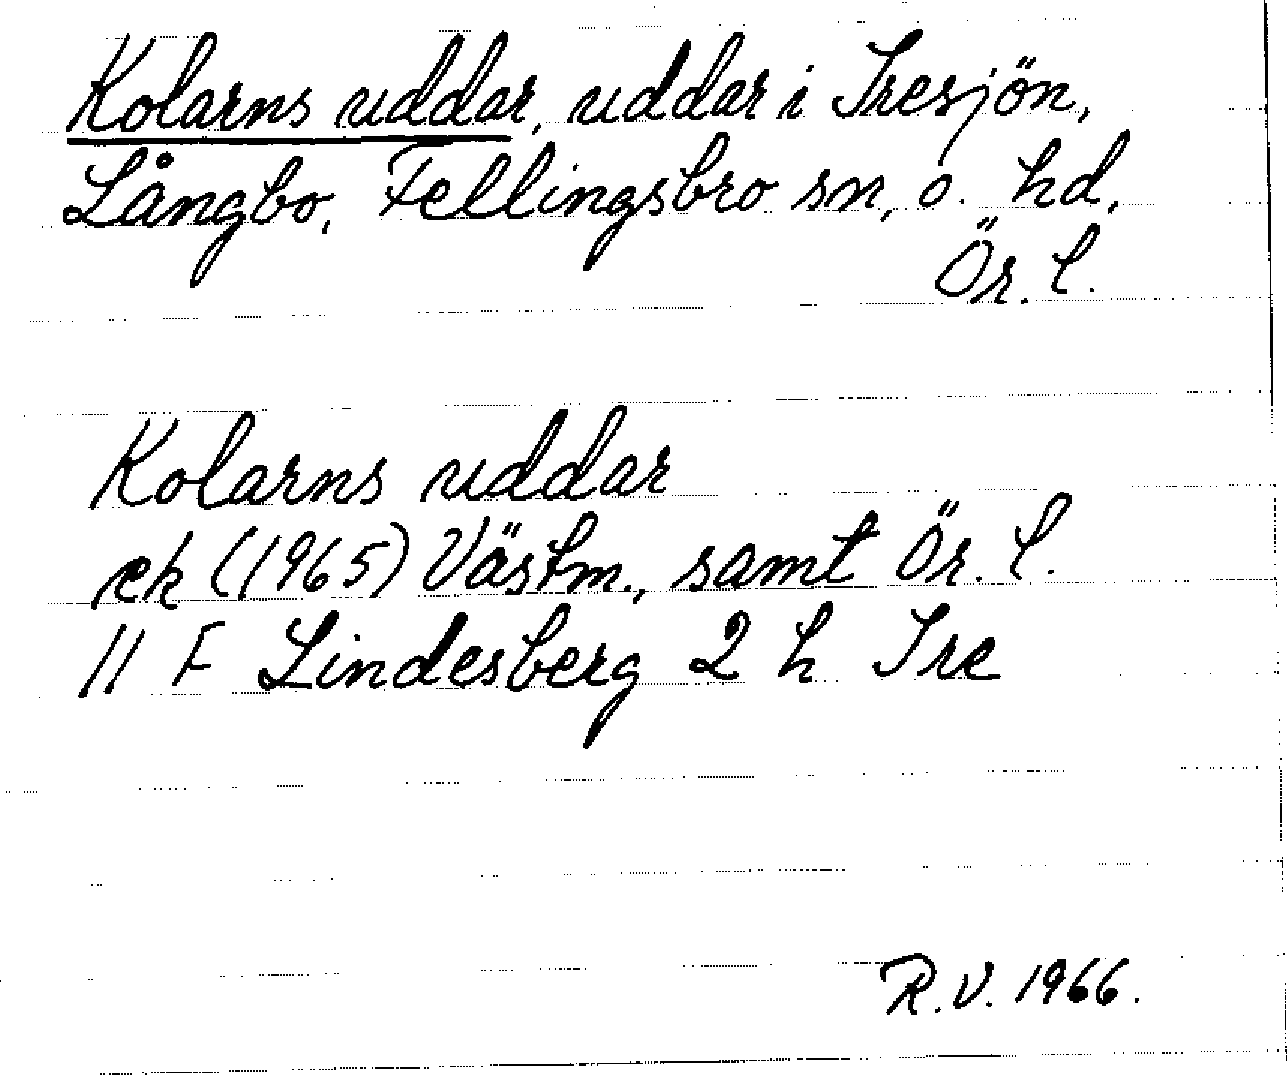 Kolarns uddar, uddar i Tresjön,
Långbo, Fellingsbro sn, o. hd,
Ör. l.
Kolarns uddar
ek (1965) Västm., samt Ör. l.
11 F Lindesberg 2 h Tre
R.V. 1966.